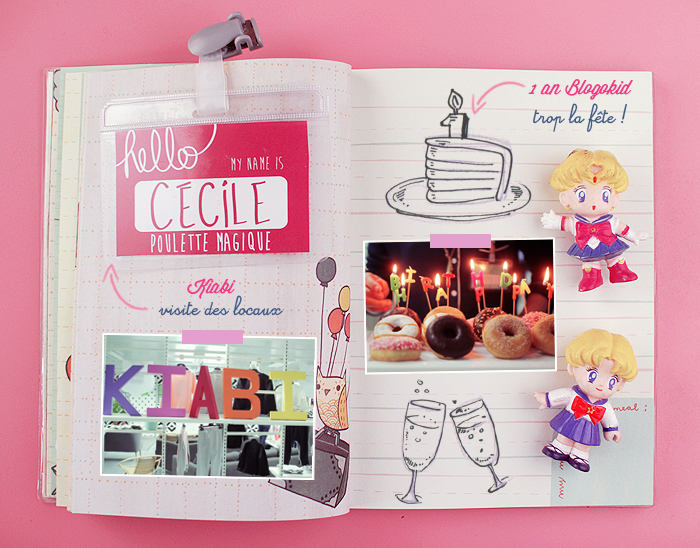 hello
MY NAME IS
CÉCILE
POULETTE MAGIQUE
Kiabi
visite des locaux
KIABI
1 an Blogokid
trop la fête !
1
meal ;